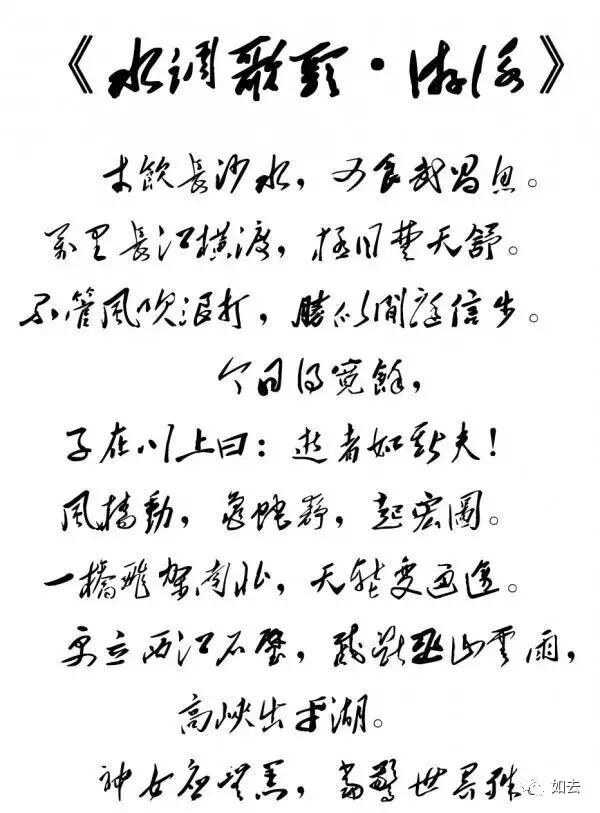 《水調歌頭·游泳》
才飲長沙水，又食武昌魚。
萬里長江橫渡，極目楚天舒。
不管風吹浪打，勝似閒庭信步。
今日得寬餘，
子在川上曰：逝者如斯夫！
風檣動，龜蛇靜，起宏圖。
一橋飛架南北，天塹變通途。
更立西江石壁，截斷巫山雲雨，
高峽出平湖。
神女應無恙，當驚世界殊
如去